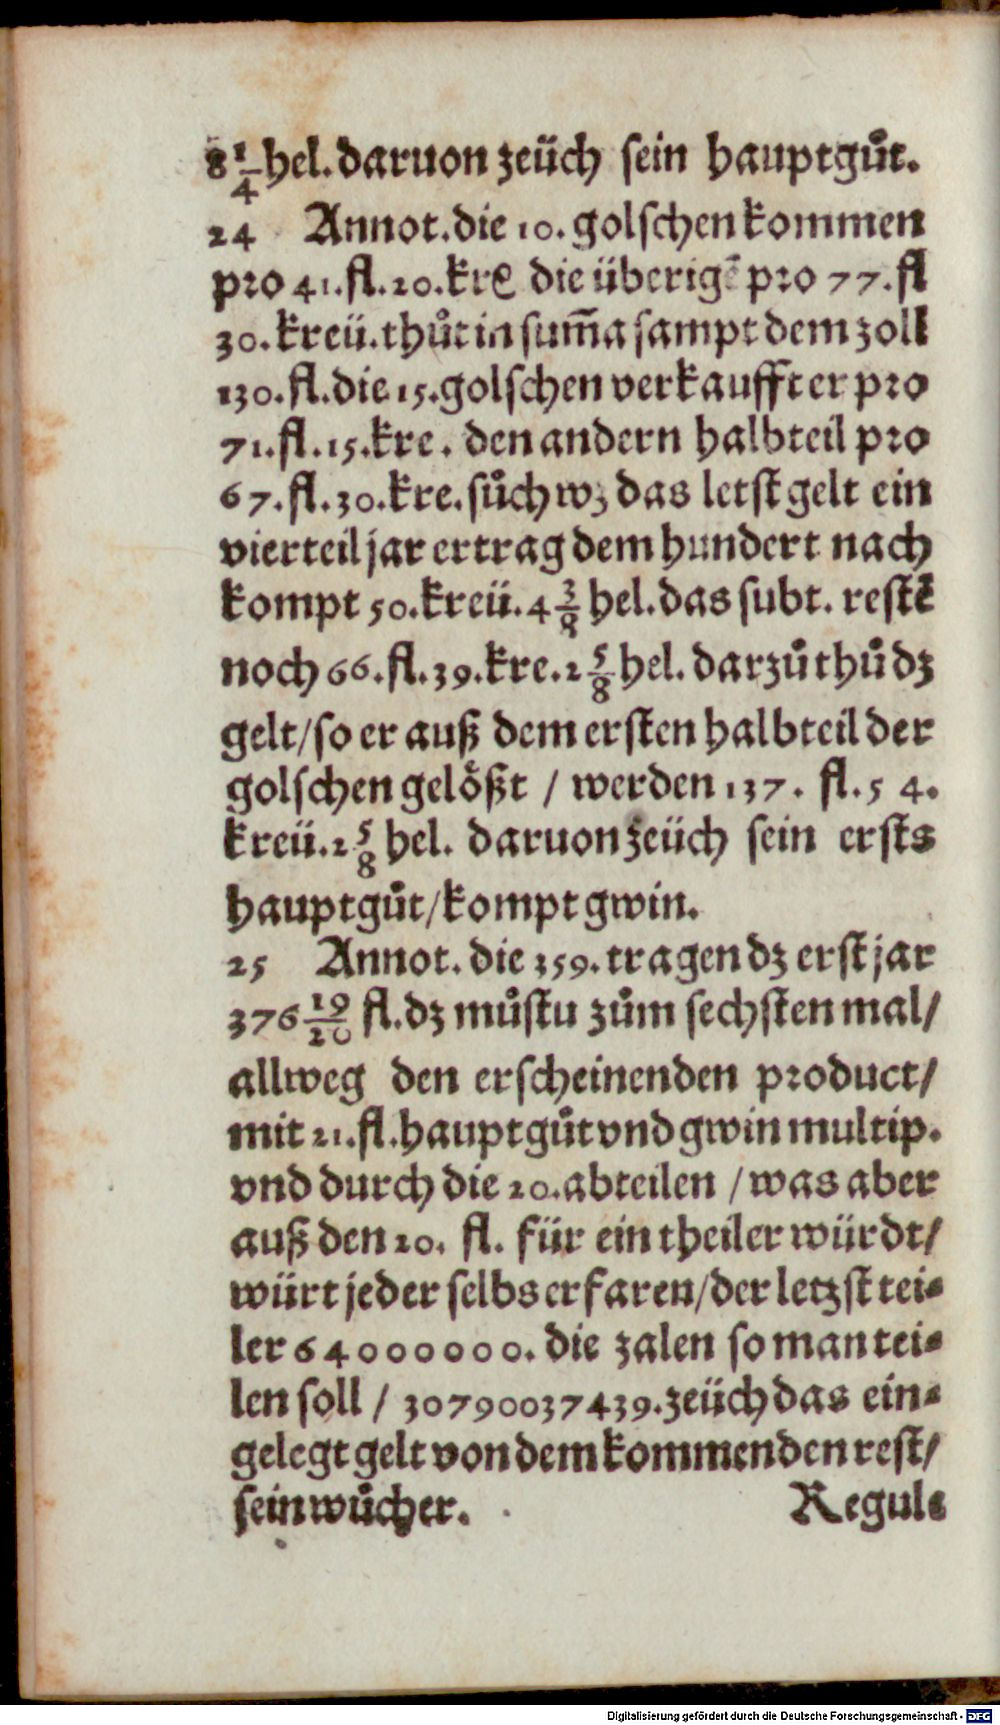 8 1/4 hel. daruon zeüch sein hauptgůt.
24 Annot. die 10. golschen kommen
pro 41. fl. 20. kre die überigē pro 77. fl
30. kreü. thůt in sum̄a sampt dem zoll
130. fl. die 15. golschen verkaufft er pro
71. fl. 15. kre. den andern halbteil pro
67. fl. 30. kre. sůch wz das letst gelt ein
vierteil jar ertrag dem hundert nach
kompt 50. kreü. 4 3/8 hel. das subt. restẽ
noch 66. fl. 39. kre. 2 5/8 hel. darzů thů dz
gelt/ so er auß dem ersten halbteil der
golschen gelößt / werden 137. fl. 54.
kreü. 2 5/8 hel. daruon zeüch sein ersts
hauptgůt/ kompt gwin.
25 Annot. die 359. tragen dz erst jar
376 19/20 fl. dz můstu zům sechsten mal/
allweg den erscheinenden product/
mit 21. fl. hauptgůt vnd gwin multip.
vnd durch die 20. abteilen / was aber
auß den 20. fl. für ein theiler würdt/
würt jeder selbs erfaren/ der letzst tei⸗
ler 64000000. die zalen so man tei⸗
len soll / 30790037439. zeüch das ein⸗
gelegt gelt von dem kommenden rest/
sein wůcher.
Regule
Digitalisierung gefördert durch die Deutsche Forschungsgemeinschaft - DFG